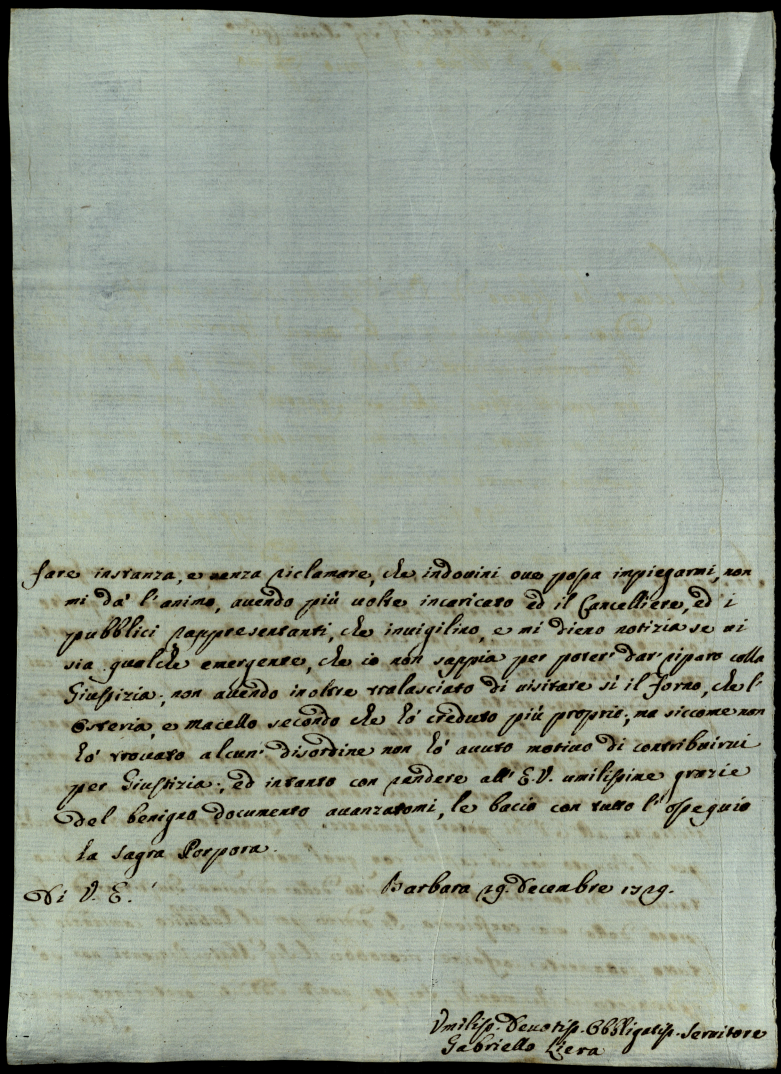 fare instanza, e senza riclamare, che indovini ove possa impiegarmi, non
mi dà l'animo, avendo più volte incaricato ed il Cancelliere, ed i
pubblici rappresentanti, che invigilino, e mi dieno notizia se vi
sia qualche emergente, che io non sappia per poter dar riparo colla
Giustizia; non avendo inoltre tralasciato di visitare sì il Forno, che l'
Osteria, e Macello secondo che hò creduto più proprio; ma siccome non
hò trovato alcun' disordine non hò avuto motivo di contribuirvi
per Giustizia; ed intanto con rendere all' E.V. umilissime grazie
del benigno documento avanzatomi, le bacio con tutto l'ossequio
la Sagra Porpora.
Di V. E. Barbara 29. Decembre 1729.
Umiliss. Devotiss. Obbligatiss. Servitore
Gabriello